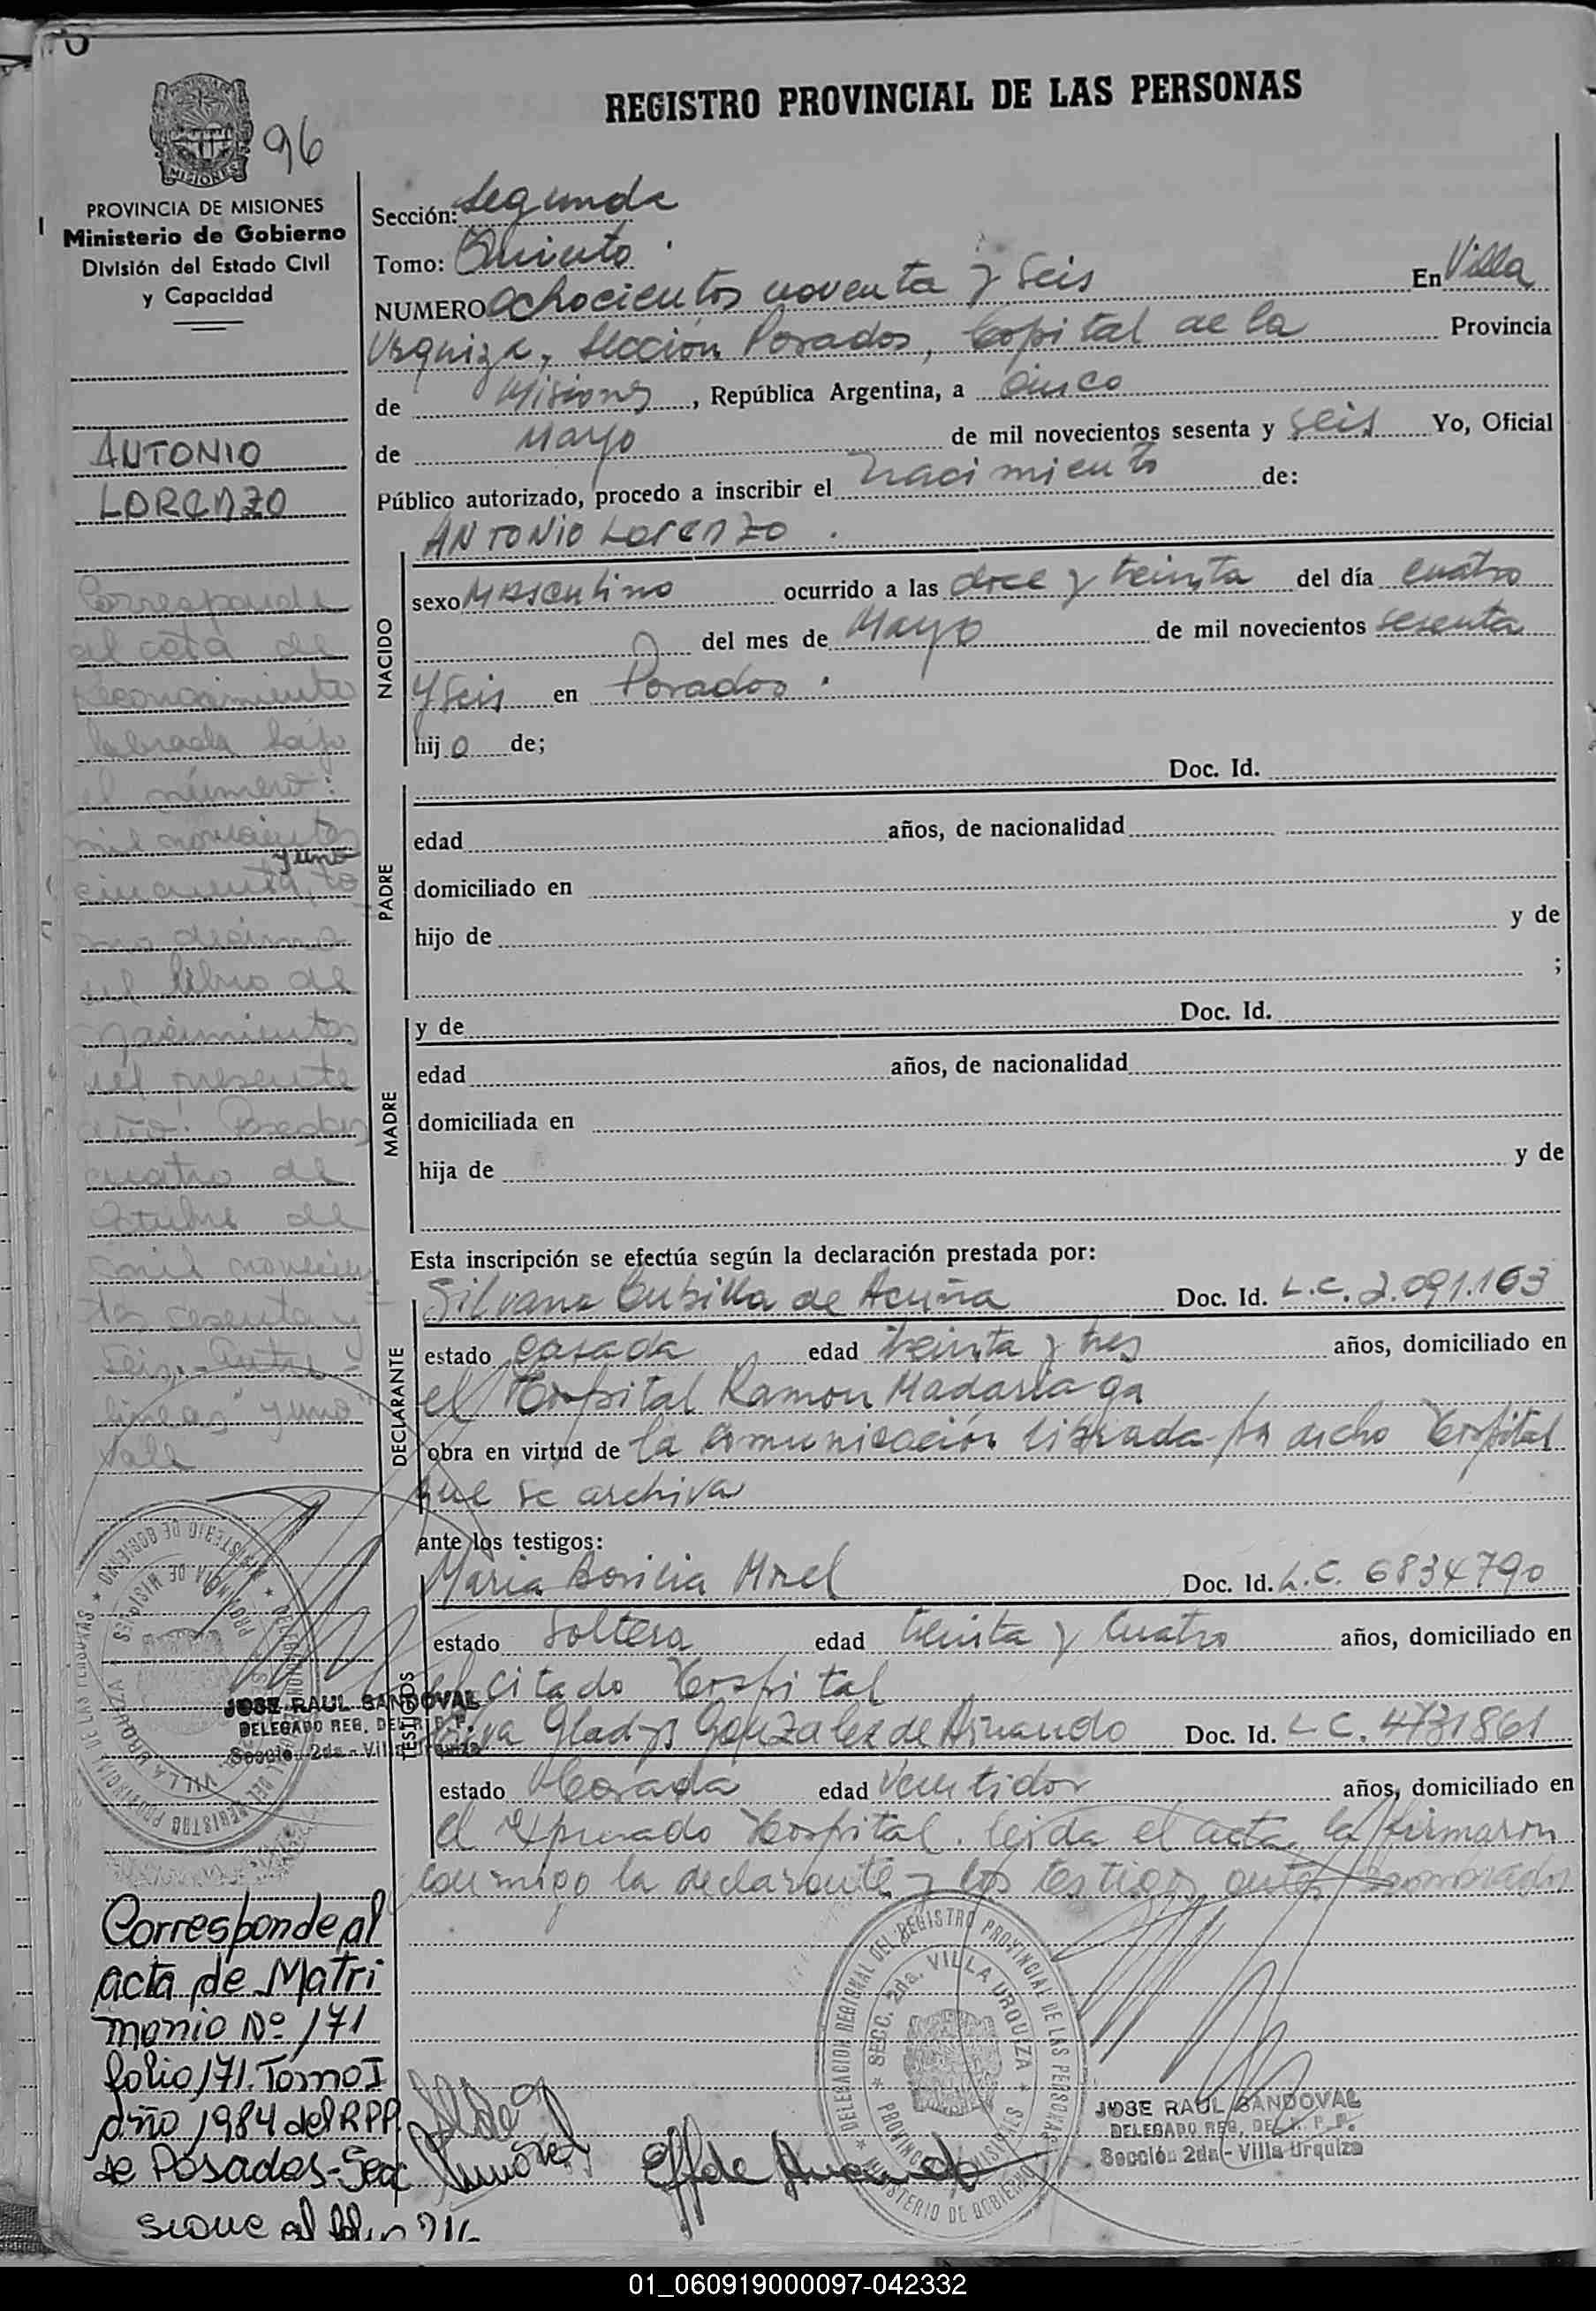 REGISTRO PROVINCIAL DE LAS PERSONAS
MISIONES
96
PROVINCIA DE MISIONES
Ministerio de Gobierno
División del Estado Civil
y Capacidad
ANTONIO
LORENZO
Corresponde
al acta de
Reconocimiento
labrada bajo
el número:
mil novecientos
y uno
cincuenta, to
mo décimo
del libro de
Nacimientos
del presente
año. Posadas
cuatro de
Octubre de
mil novecien
tos sesenta y
seis.- Entre
líneas "y uno"
vale
JOSE RAUL SANDOVAL
DELEGADO REG. DEL R. P. P.
Sección 2da - Villa Urquiza
Corresponde al
acta de Matri
monio Nº 171
folio 171. Tomo I
año 1984 del RPP.
de Posadas - Secc
sigue al folio
Sección: Segunda
Tomo: Quinto.
NUMERO Ochocientos noventa y seis En Villa
Urquiza, Sección Posadas, Capital de la Provincia
de Misiones, República Argentina, a Cinco
de Mayo de mil novecientos sesenta y seis Yo, Oficial
Público autorizado, procedo a inscribir el nacimiento de:
ANTONIO Lorenzo.
NACIDO
sexo Masculino ocurrido a las doce y treinta del día cuatro
del mes de Mayo de mil novecientos sesenta
y seis en Posadas.
hijo de;
PADRE
Doc. Id.
edad años, de nacionalidad
domiciliado en
hijo de y de
;
MADRE
y de Doc. Id.
edad años, de nacionalidad
domiciliada en
hija de y de
Esta inscripción se efectúa según la declaración prestada por:
DECLARANTE
Silvana Cubilla de Acuña Doc. Id. L.C. 2.091.163
estado casada edad treinta y tres años, domiciliado en
el Hospital Ramon Madariaga
obra en virtud de la comunicación librada por dicho Hospital
que se archiva
ante los testigos:
TESTIGOS
Maria Morel Doc. Id. L.C. 6834790
estado Soltera edad treinta y cuatro años, domiciliado en
el citado Hospital
Gladys Gonzalez de Doc. Id. L.C. 4731861
estado Casada edad veintidos años, domiciliado en
el expresado Hospital. leida el acta, la firmaron
conmigo la declarante y los testigos antes nombrados
DELEGACION REGIONAL DEL REGISTRO PROVINCIAL DE LAS PERSONAS
SECC. 2da. VILLA URQUIZA
PROVINCIA DE MISIONES
MINISTERIO DE GOBIERNO
JOSE RAUL SANDOVAL
DELEGADO REG. DEL R. P. P.
Sección 2da - Villa Urquiza
01_060919000097-042332